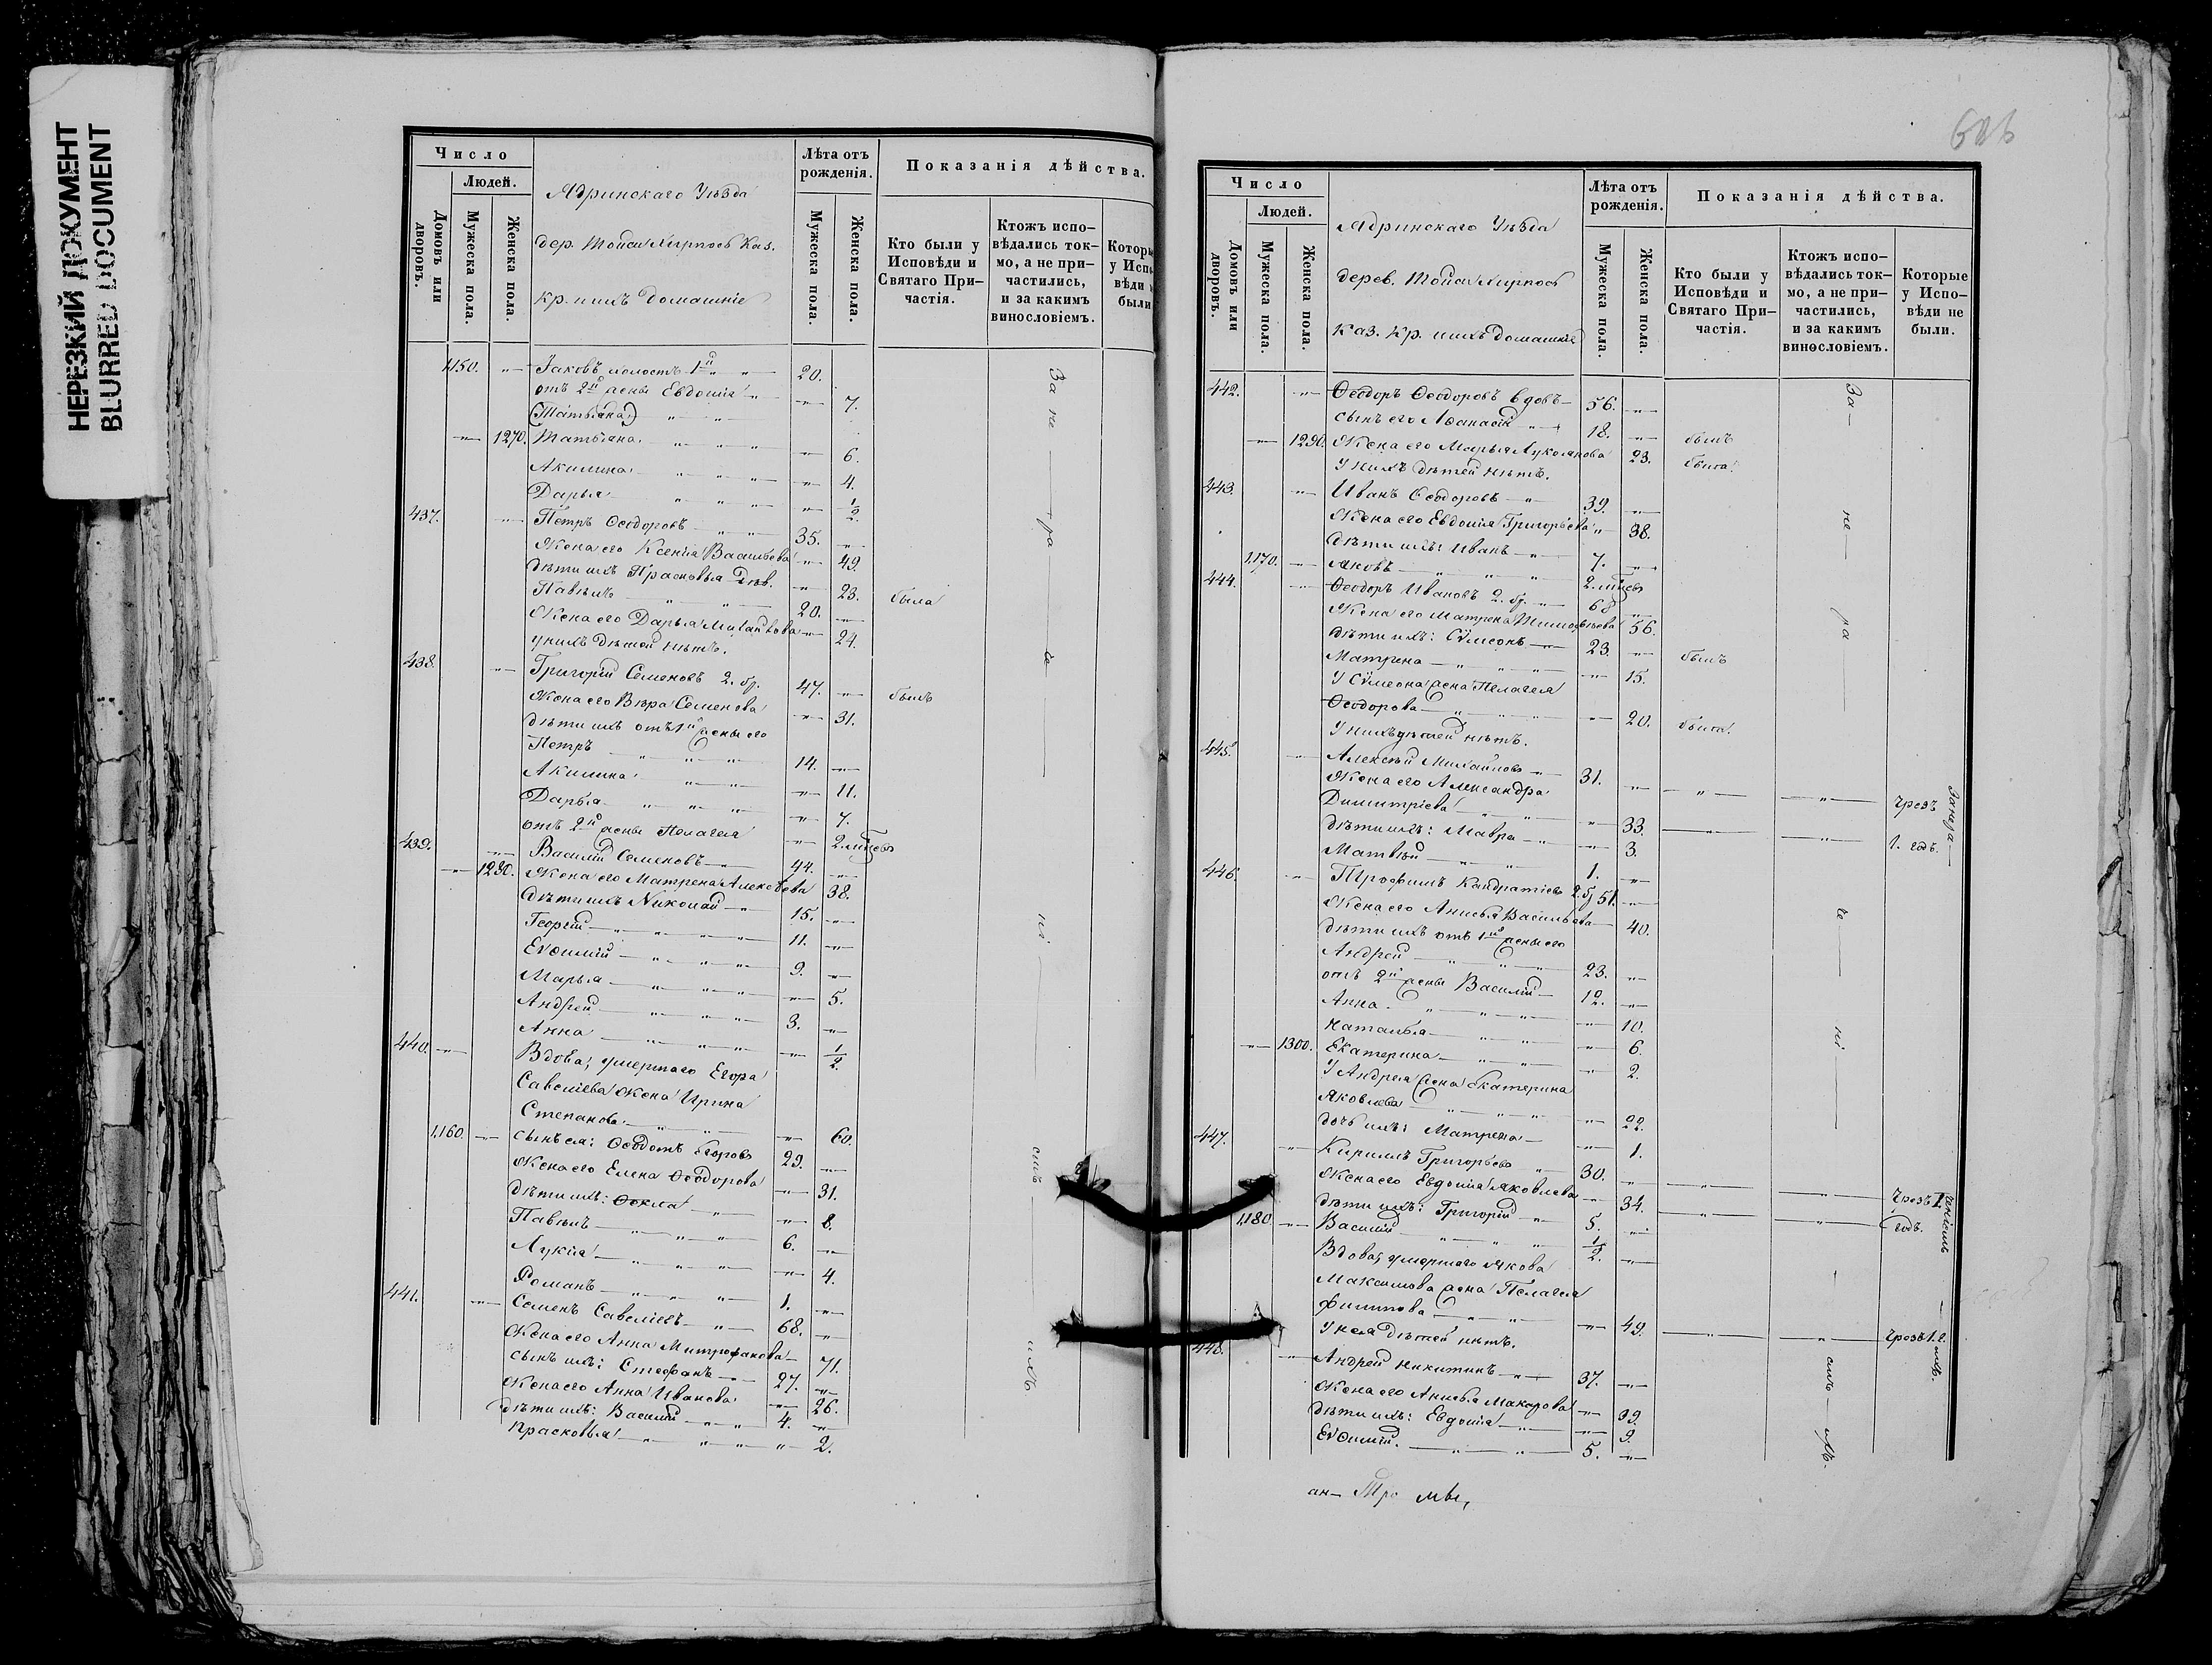 НЕРЕЗКИЙ ДОКУМЕНТ
BLURRED DOCUMENT
Число
Людей.
Домовъ или дворовъ.
Мужеска пола.
Женска пола.
Ядринскаго Уѣзда
дер. Каз.
кр. и ихъ домашніе
Лѣта отъ рожденія.
Мужеска пола.
Женска пола.
Показанія дѣйства.
Кто были у Исповѣди и Святаго Причастія.
Ктожъ испо-
вѣдались ток-
мо, а не при-
частились,
и за какимъ
винословіемъ.
Которы
у Исп
вѣди
были
1150. Іаковъ 20.
отъ 2й жены Евдокія 7.
(Татьяна)
1270. Татьяна 6.
Акилина 4.
Дарья 1/2
437. Петръ Ѳеодоровъ 35.
Жена его Ксенія Васильева 49.
дѣти ихъ Прасковья дѣв. 23. была
Павелъ 20.
Жена его Дарья Михайлова 24.
у нихъ дѣтей нѣтъ.
438. Григорій Семеновъ 2. бр. 47. былъ
Жена его Вѣра Семенова 31.
дѣти ихъ отъ 1й жены его
Петръ 14.
Акилина 11.
Дарья 7.
отъ 2й жены Пелагея 2. мѣсяц
439. Василій Семеновъ 44.
1280. Жена его Матрена Алексѣева 38.
дѣти ихъ Николай 15.
Георгій 11.
Еѵѳимій 9.
Марья 5.
Андрей 3.
Анна 1/2
440. Вдова, умершаго Егора
Савеліева жена Ирина
Степанова 60.
1160. сынъ ея: Ѳеодотъ Егоровъ 29.
Жена его Елена Ѳеодорова 31.
дѣти ихъ: Ѳекла 8.
Павелъ 6.
Лукія 4.
Романъ 1.
441. Семенъ Савеліевъ 68.
Жена его Анна Митрофанова 71.
сынъ ихъ: Стефанъ 27.
Жена его Анна Иванова 26.
дѣти ихъ: Василій 4.
Прасковья 2.
За не ра че ні емъ ихъ
Число
Людей.
Домовъ или дворовъ.
Мужеска пола.
Женска пола.
Ядринскаго Уѣзда
дерев.
каз. кр. и ихъ домашніе
Лѣта отъ рожденія.
Мужеска пола.
Женска пола.
Показанія дѣйства.
Кто были у Исповѣди и Святаго Причастія.
Ктожъ испо-
вѣдались ток-
мо, а не при-
частились,
и за какимъ
винословіемъ.
Которые
у Испо-
вѣди не
были.
442. Ѳеодоръ Ѳеодоровъ вдовъ 56.
сынъ его Аѳанасій 18. былъ
1290. Жена его Марья Лукоянова 23. была
У нихъ дѣтей нѣтъ.
443. Иванъ Ѳеодоровъ 39.
Жена его Евдокія Григорьева 38.
дѣти ихъ: Иванъ 7.
1170. Яковъ 2. мѣсяц
444. Ѳеодоръ Ивановъ 2. бр. 68
Жена его Матрена Тимоѳеева 56.
дѣти ихъ: Сѵмеонъ 23. былъ
Матрена 15.
У Сѵмеона жена Пелагея
Ѳеодорова 20. была
У нихъ дѣтей нѣтъ.
445. Алексѣй Михайловъ 31.
Жена его Александра чрезъ
Димитріева 33.
дѣти ихъ: Мавра 3. 1. годъ.
Матвѣй 1.
446. Трофимъ Кандратіевъ 2. бр. 51.
Жена его Анисья Васильева 40.
дѣти ихъ отъ 1й жены его
Андрей 23.
отъ 2й жены Василій 12.
Анна 10.
Наталья 6.
1300. Екатерина 2.
У Андрея жена Екатерина
Яковлева 22.
дочь ихъ: Матрена 1.
447. Кирилъ Григорьевъ 30.
Жена его Евдокія Яковлева 34. чрезъ 1.
дѣти ихъ: Григорій 5. годъ.
1180. Василій 1/2.
Вдова, умершаго Якова
Максимова жена Пелагея
Филипова 49. чрезъ 1. г.
У нея дѣтей нѣтъ.
448. Андрей Никитинъ 37.
Жена его Анисья Макарова 39.
дѣти ихъ: Евдокія 9.
Еѵѳимій. 5.
За не ра че ні емъ ихъ.